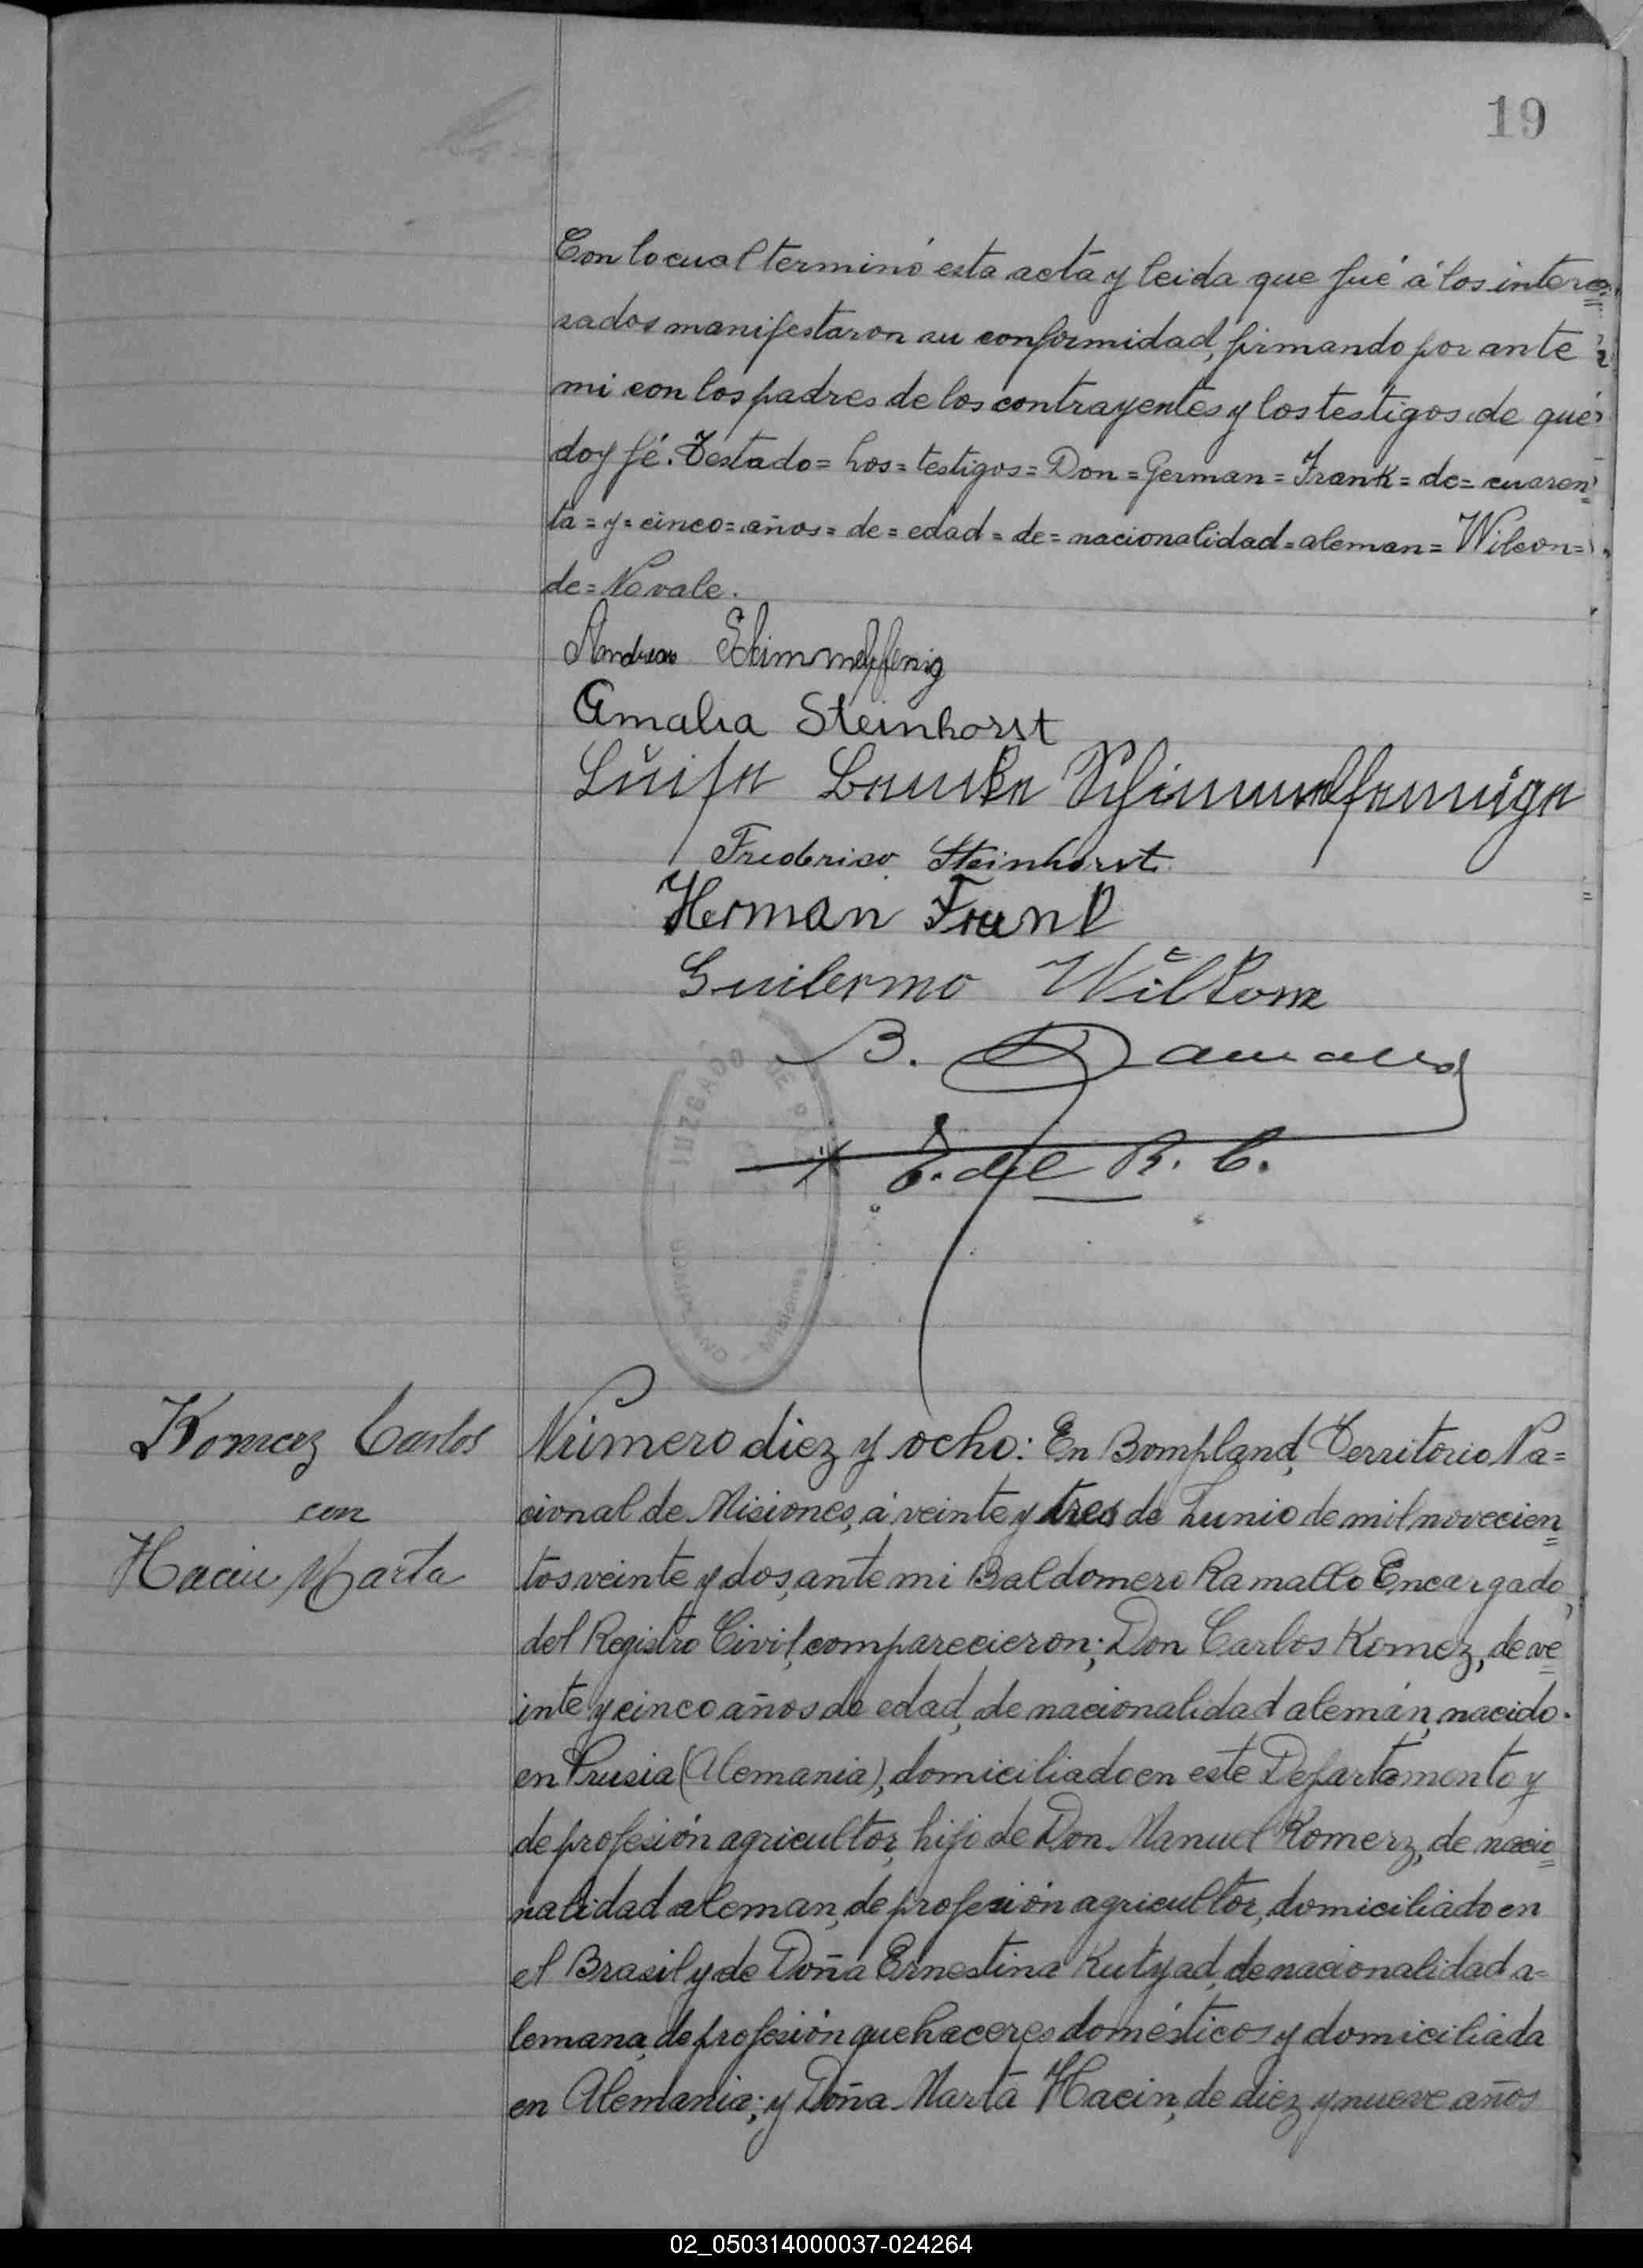 19
Con lo cual terminó esta acta y leida que fué á los intere=
sados manifestaron su conformidad, firmando por ante
mi con los padres de los contrayentes y los testigos de que
doy fé. Testado= Los= testigos= Don= German= Frank= de= cuaren=
ta= y= cinco= años= de= edad= de= nacionalidad= aleman= Wilson=
de= No vale.
Andreas Schimmelpfenig
Amalia Steinhorst
Luisa Schimmelfenniga
Frederico Steinhorst
Herman Frank
Guilermo Wilkom
B. Ramallo
E. del R. C.
JUZGADO DE PAZ
Misiones
Komerz Carlos
con
Hacin Marta
Número diez y ocho: En Bompland, Territorio Na=
cional de Misiones, á veinte y tres de Junio de mil novecien=
tos veinte y dos, ante mi Baldomero Ramallo Encargado
del Registro Civil, comparecieron; Don Carlos Komez, de ve=
inte y cinco años de edad, de nacionalidad alemán, nacido
en Prusia (Alemania), domiciliado en este Departamento y
de profesión agricultor, hijo de Don Manuel Komerz, de nacio=
nalidad aleman, de profesión agricultor, domiciliado en
el Brasil y de Doña Ernestina Kutyad, de nacionalidad a=
lemana, de profesión quehaceres domésticos y domiciliada
en Alemania; y Doña Marta Hacin, de diez y nueve años
02_050314000037-024264